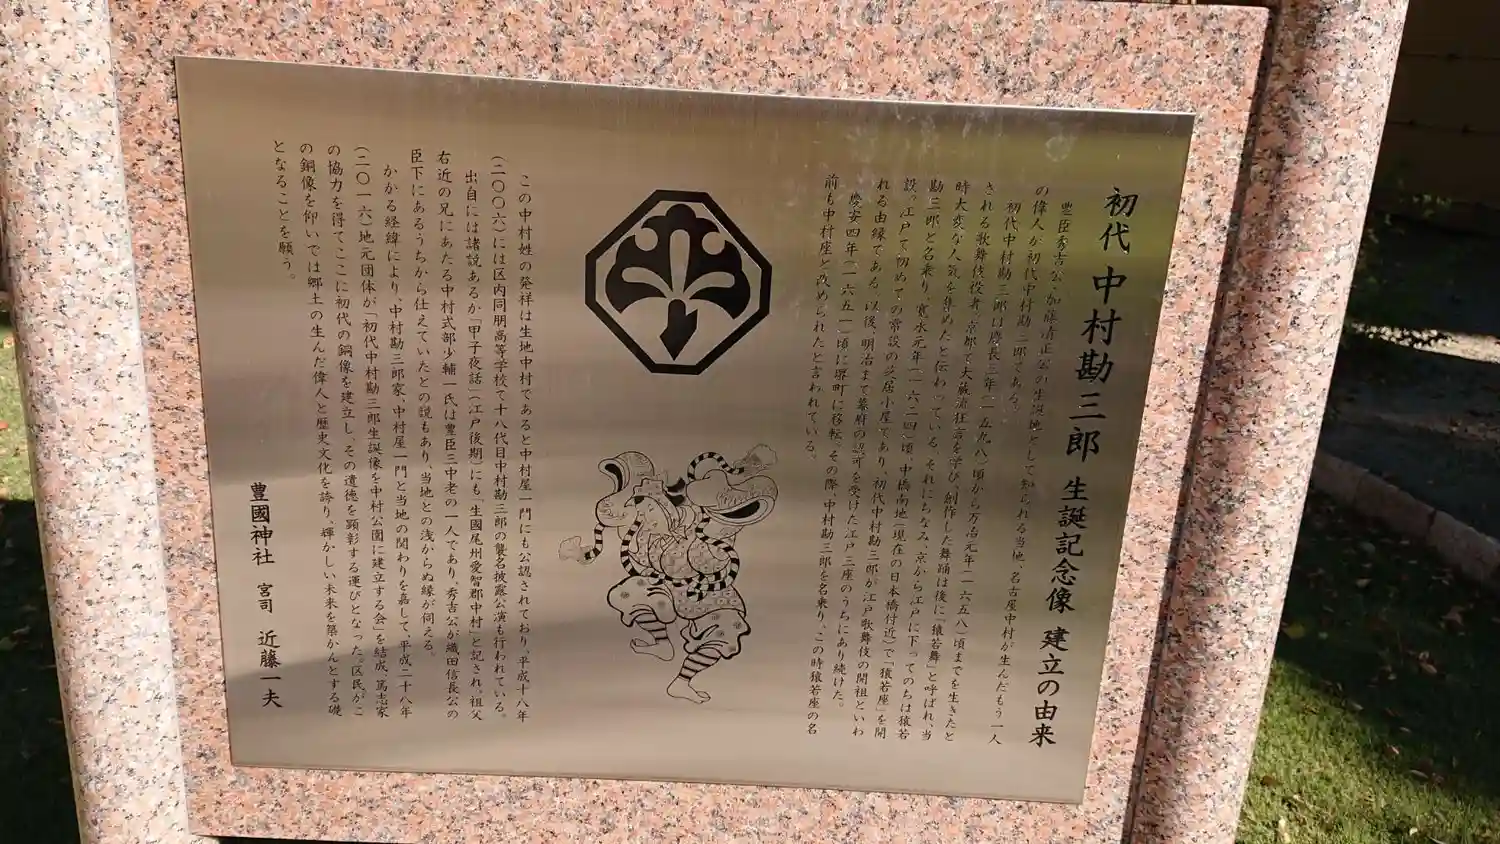 初代 中村勘三郎 生誕記念像 建立の由来
豊臣秀吉公、加藤清正公の生誕地として知られる当地、名古屋中村が生んだもう一人
の偉人が初代中村勘三郎である。
初代中村勘三郎は慶長三年(一五九八)頃から万治元年(一六五八)頃までを生きたと
される歌舞伎役者。京都で大蔵流狂言を学び、創作した舞踊は後に「猿若舞」と呼ばれ、当
時大変な人気を集めたと伝わっている。それにちなみ、京から江戸に下ってのちは猿若
勘三郎と名乗り、寛永元年(一六二四)頃、中橋南地(現在の日本橋付近)で「猿若座」を開
設。江戸で初めての常設の芝居小屋であり、初代中村勘三郎が江戸歌舞伎の開祖といわ
れる由縁である。以後、明治まで幕府の認可を受けた江戸三座のうちにあり続けた。
慶安四年(一六五一)頃に堺町に移転、その際、中村勘三郎を名乗り、この時猿若座の名
前も中村座と改められたと言われている。
この中村姓の発祥は生地中村であると中村屋一門にも公認されており、平成十八年
(二〇〇六)には区内同朋高等学校で十八代目中村勘三郎の襲名披露公演も行われている。
出自には諸説あるが「甲子夜話」(江戸後期)にも「生國尾州愛智郡中村」と記され、祖父
右近の兄にあたる中村式部少輔一氏は豊臣三中老の一人であり、秀吉公が織田信長公の
臣下にあるうちから仕えていたとの説もあり、当地との浅からぬ縁が伺える。
かかる経緯により、中村勘三郎家、中村屋一門と当地の関わりを嘉して、平成二十八年
(二〇一六)地元団体が「初代中村勘三郎生誕像を中村公園に建立する会」を結成、篤志家
の協力を得てここに初代の銅像を建立し、その遺徳を顕彰する運びとなった。区民がこ
の銅像を仰いでは郷土の生んだ偉人と歴史文化を誇り、輝かしい未来を築かんとする礎
となることを願う。
豊國神社 宮司 近藤一夫